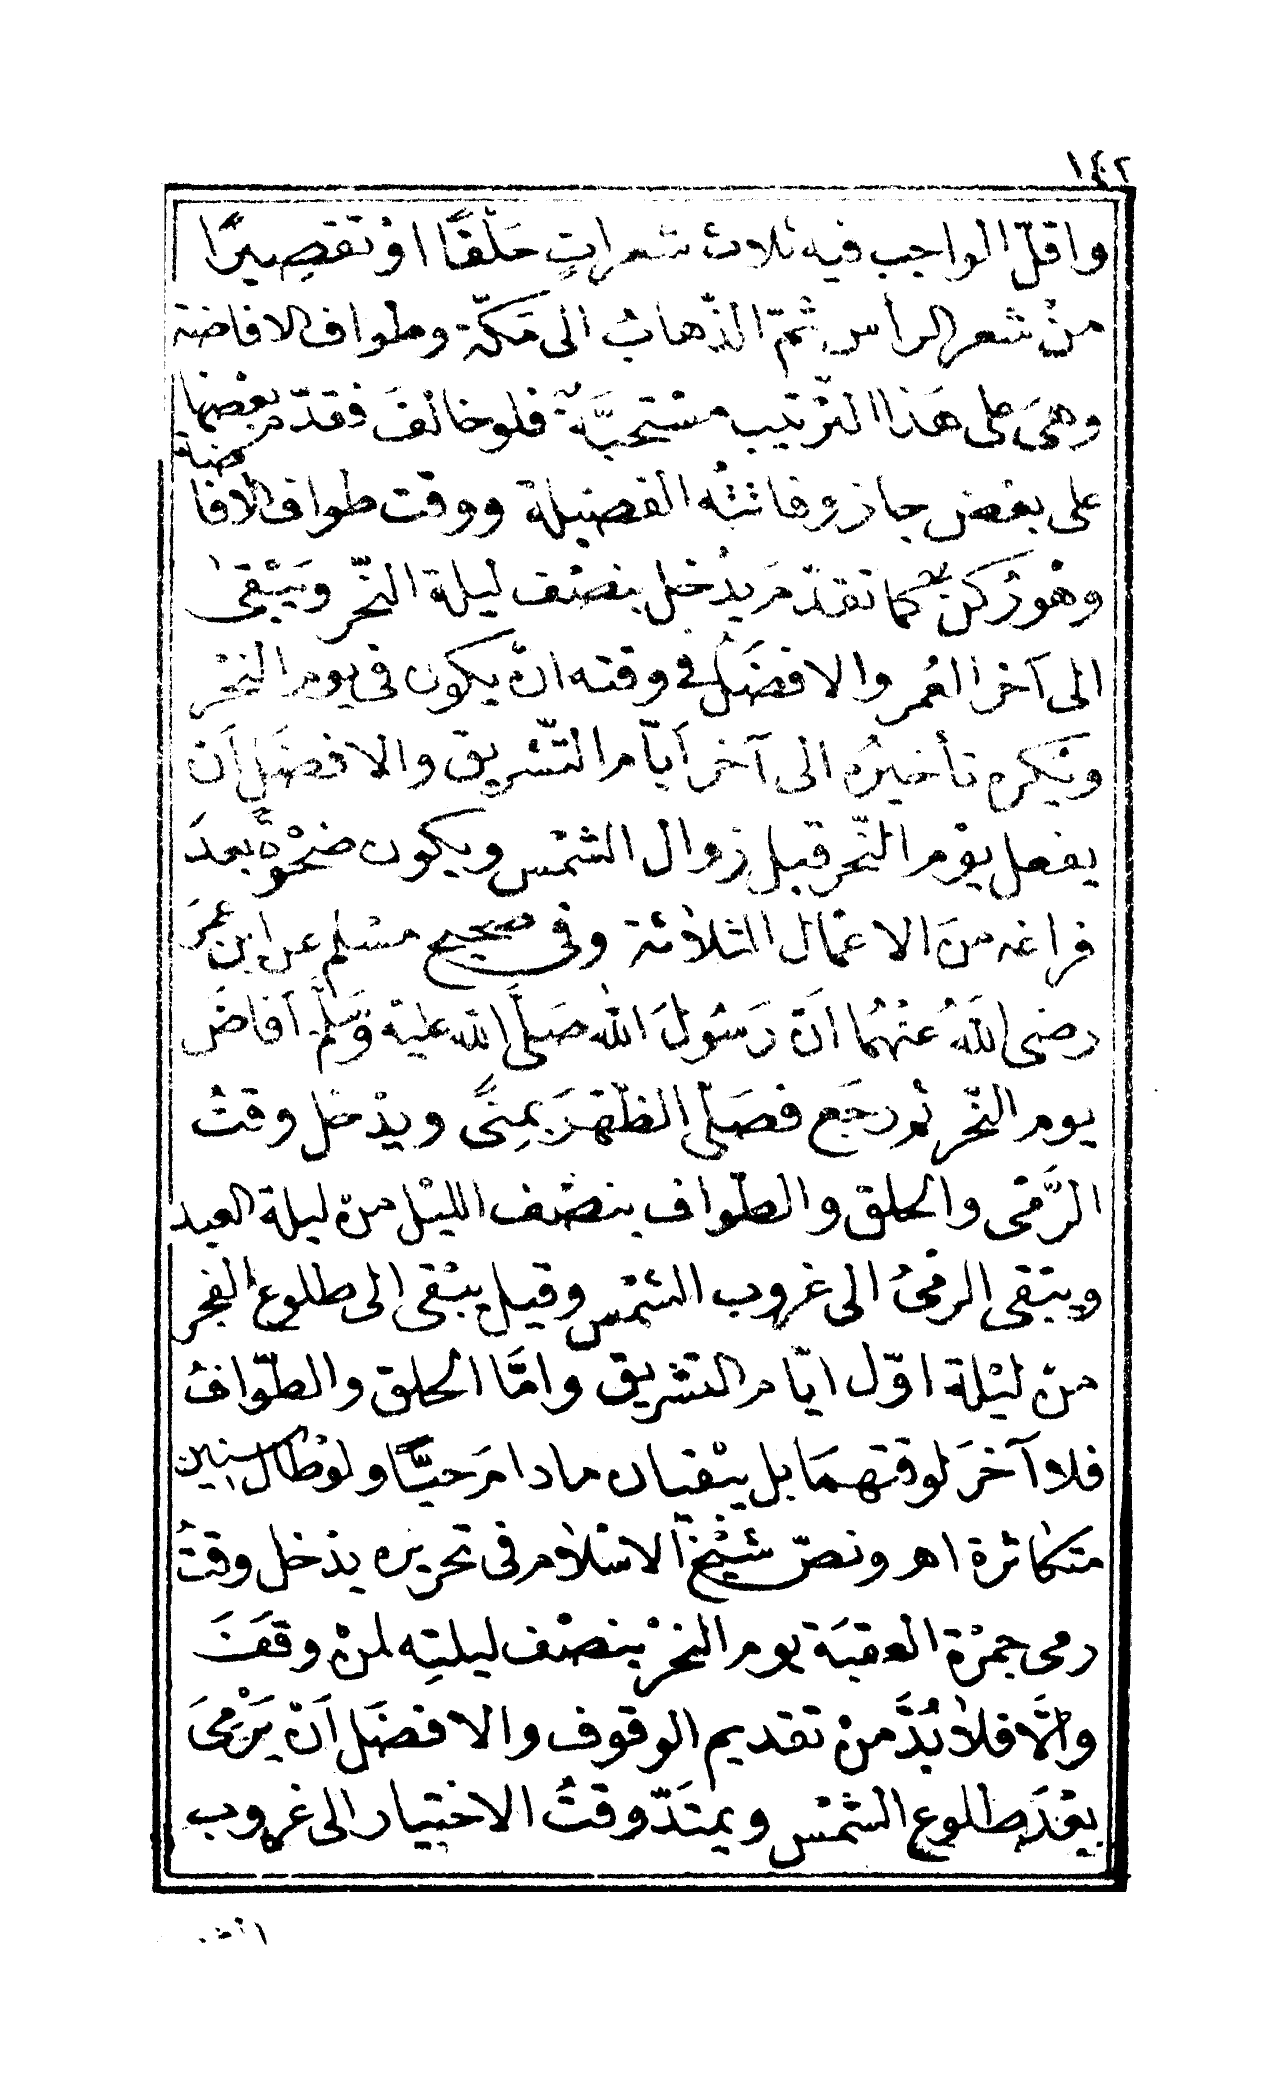 ١٤٢
واقلّ الواجب فيه ثلاث شعراتٍ حَلْقًا اوْ تقصِيرًا
منْ شعر الرأس ثمّ الذّهابُ الى مَكّة وطواف الافاضة
وهىَ على هَذا الترْتيب مسْتحبَّةٌ فلو خالفَ فقدّم بعْضها
على بعْض جاز وفاتتْهُ الفضيلة ووقت طواف الافاضة
وهْو رُكنٌ كما تقدّمَ يدْخل بنصْف ليلة النّحْر ويَبْقى
الى آخر العُمر والافضَلُ فى وقته انْ يكون فى يوم النحْر
ويُكره تأخيرُه الى آخر أيّام التّشريق والافضَل أن
يفعل يوْم النّحر قبل زوال الشمْس ويكون ضحْوةً بعدَ
فراغه منَ الاعْمال الثلاثة وفى صحيح مسْلم عن ابن عُمَرَ
رضى اللهُ عنْهُما انّ رَسُولَ اللهِ صَلَّى الله عليْه وَسَلّم أفاضَ
يوم النّحْر ثم رجَع فصَلّى الظّهْرَ بمِنًى ويدْخل وقتُ
الرَّمْى والحلق والطّواف بنصْف الليْل منْ ليلة العيد
ويبْقى الرمْىُ الى غروب الشمْس وقيل يبْقى الى طلوع الفجْر
منْ ليْلة اوّل ايّام التشريق وامّا الحلق والطّوافُ
فلا آخرَ لوقتهمَا بل يبْقيان ما دامَ حيًّا ولوْ طال سنين
متكاثرة اهـ ونصّ شيْخ الاسْلام فى تحريره يدْخل وقتُ
رمى جمرْة العقبَة يوم النحْر بنصْف ليلتِه لمنْ وقَفَ
والَّا فلا بُدَّ منْ تقديم الوقوف والافضَل أنْ يَرْمىَ
بعْدَ طلوع الشمْس ويمتَدّ وقتُ الاختيار الى غروب